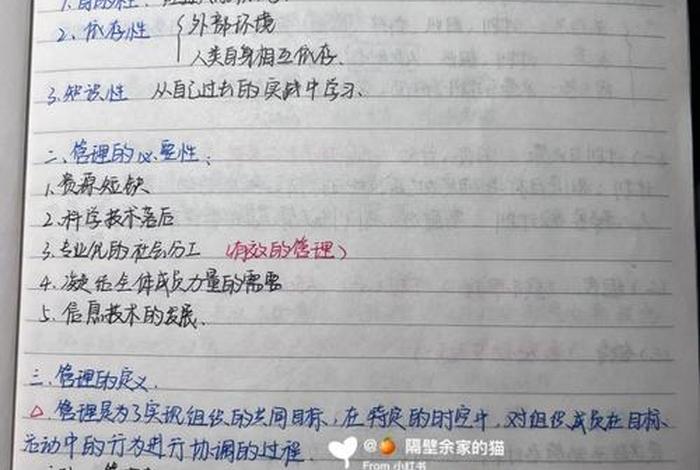 1.目的性:
2.依存性 { 外部环境
人类自身相互依存.
3.知识性 从自己过去的实践中学习.
二、管理的必要性:
1.资源短缺
2.科学技术落后
3.专业化的社会分工 (有效的管理)
4.凝结全体成员力量的需要
5.信息技术的发展.
三.管理的定义.
△ 管理是为了实现组织的共同目标,在特定的时空中,对组织成员在目标
活动中的行为进行协调的过程.
@🍊 隔壁余家的猫
From 小红书